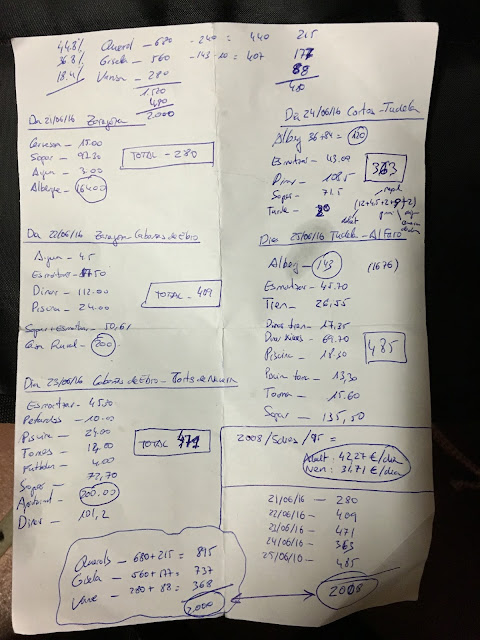 44.8% Querol - 680 - 240 = 440 215
36.8% Gisela - 560 - 143-10 = 407 177
18.4% Vanesa - 280 88
1.520 480
480
2000
Dia 21/06/16 Zaragoza
Cerveses - 15.00
Sopar - 92.30
Aigua - 3.00
Alberge - 164.00
TOTAL - 280
Dia 22/06/16 Zaragoza - Cabañas de Ebro
Aigua - 4.5
Esmorzar - 17.50
Dinar - 112.00
Piscina - 24.00
Sopar + Esmorzar - 50,61
Casa Rural - 200
TOTAL - 409
Dia 23/06/16 Cabañas de Ebro -
Esmorzar - 45.50
Petardos - 10.00
Piscina - 24.00
Tonics - 12.00
Futbolin - 4.00
Sopar - 72,70
Apartament - 200.00
Dinar - 101,2
TOTAL 471
Dia 24/06/16 Cortes - Tudela
Alberg 36+84 = 120
Esmorzar - 43.09
Dinar - 108.5
Sopar - 71.5
Tarde - 20
363
Dia 25/06/16 Tudela - Alfaro
Alberg - 143 (1676)
Esmorzar - 45.70
Tren - 26,55
Dinar tren - 17,35
69.70
Piscina - 18.50
13,30
15.60
Sopar - 135,50
485
2008 / 5 dies / 95 =
Adult: 42,27 €/dia
Nen: 31,71 €/dia
21/06/16 - 280
22/06/16 - 409
23/06/16 - 471
24/06/16 - 363
25/06/16 - 485
2008
Querols - 680+215 = 895
Gisela - 560+177 = 737
Vane - 280+88 = 368
2.000